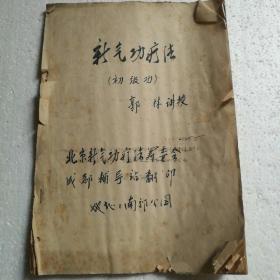 新气功疗法
(初级功)
郭林讲授
北京新气功疗法
成都辅导站翻印
南郊公园